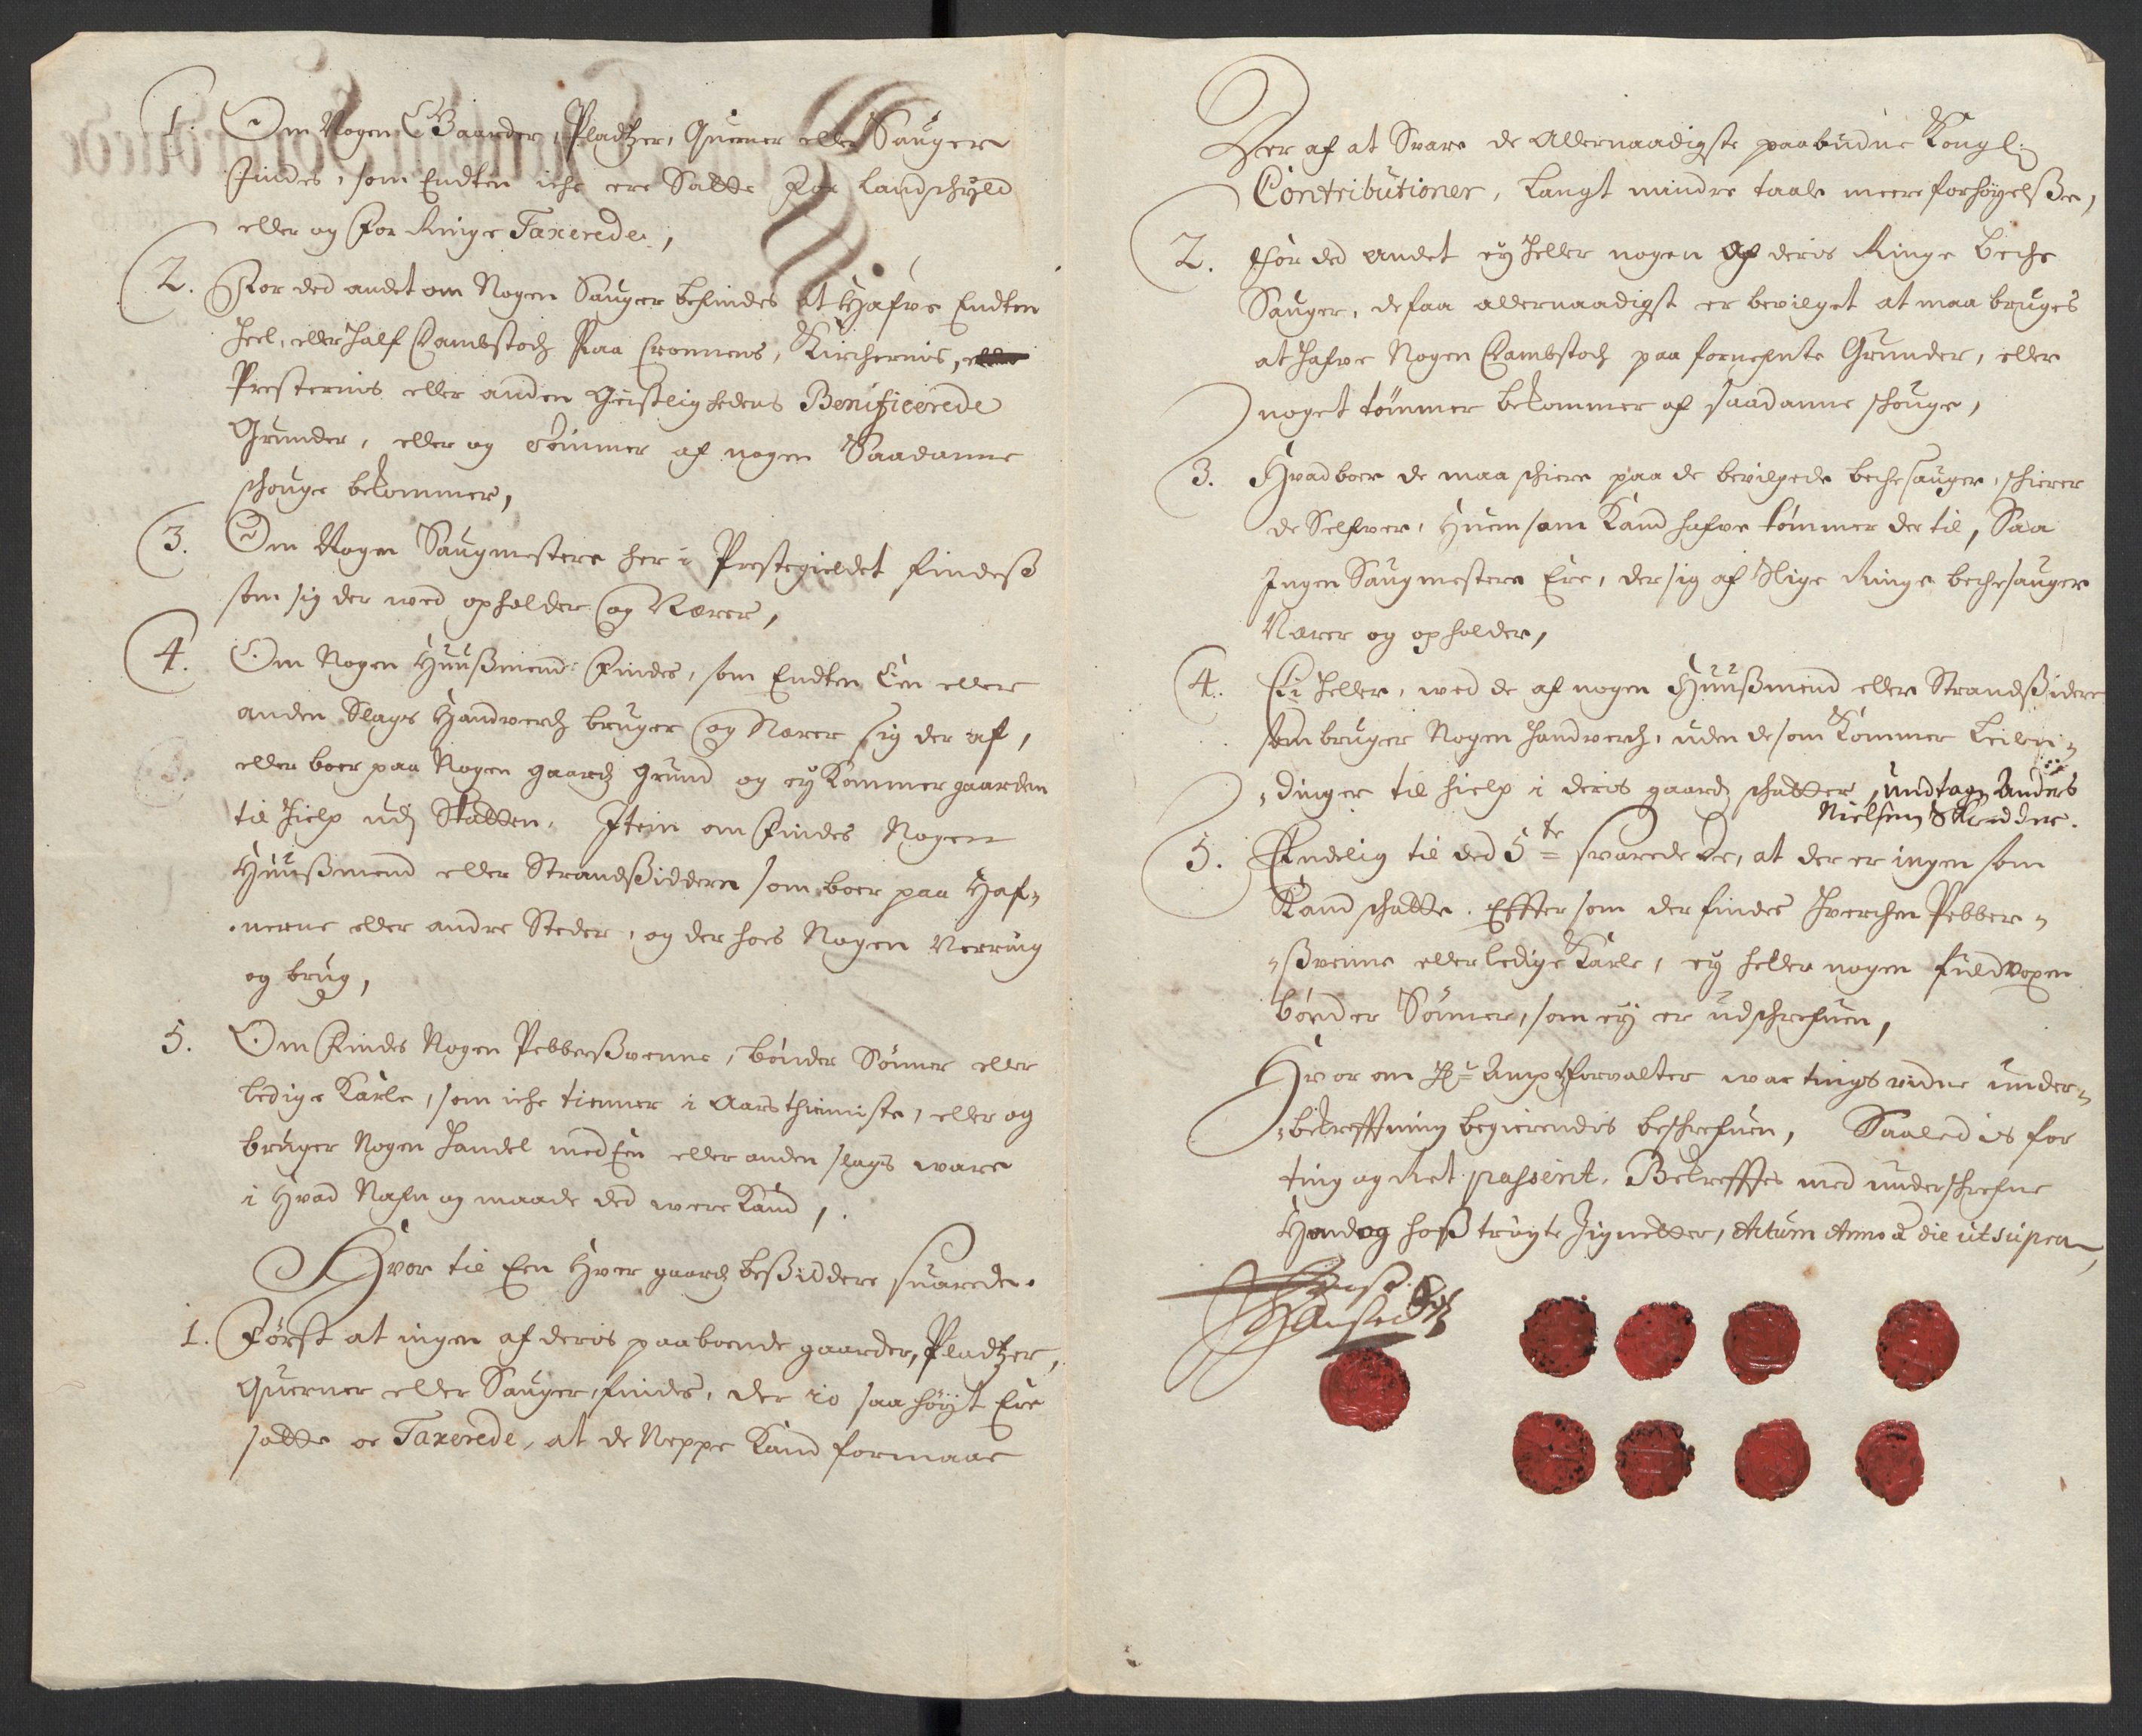 1. Om Nogen Gaarder, Pladtzer, Querner eller Sauger
findes, som Endten iche ere Satte For Landschyld
eller og For Ringe Taxerede,
2. For ded andet om Nogen Sauger befindes at Hafve Endten
heel, eller half Dambstoch Paa Cronnens, Kirchernis, eller
Presternis eller anden Geistlighedens Benificerede
Grunder, eller og Tømmer af nogen Saadanne
schouge bekommer,
3. Om Nogen Saugmestere her i Prestegieldet findeß
som sig der wed opholder og Nærer,
4. Om Nogen Huußmend Findes, som Endten Een eller
anden Slags Handverch bruger og Nærer sig der af,
eller boer paa Nogen gaardz grund og ey Kommer gaarden
til hielp udj Skatten, Item om Findes Nogen
Huußmend eller Strandßiddere som boer paa Haf-
nerne eller andre Steder, og der hoes Nogen Nerring
og brug,
5. Om Findes Nogen Pebberßvenne, bønder Sønner eller
ledige Karle, som iche tienner i Aars thienniste, eller og
bruger Nogen handel med Een eller anden slags ware
i Hvad Nafn og maade ded were Kand,
Hvor til Een Hver gaardz beßiddere suarede.
1. Først at ingen af deris paaboende gaarder, Pladtzer,
Querner eller Sauger findes, der io saa høyt Ere
satte oc Taxerede, at de Neppe Kand formaae
Der af at Svare de Allernaadigste paabudne Kongl:
Contributioner, langt mindre taale meere forhøyelße,
2. For ded andet ey heller nogen af deris Ringe beche
Sauger, de faa allernaadigst er bevilget at maa bruges
at hafve Nogen Dambstoch paa fornefnte Grunder, eller
noget tømmer bekommer af saadanne schouge,
3. Hvad boer de maa schiere paa de bevilgede bechesauger, schierer
de Selfver, Huem som Kand hafve tømmer der til, Saa
Ingen Saugmestere Ere, der sig af Slige Ringe bechesauger
Nærer og opholder,
4. Ei heller, wed de af nogen Huußmend eller Strandßidere
som bruger Nogen handverch, uden de som Kommer Leilen-
dinger til hielp i deris gaardz schatter, undtagen Anders
Nielsen Skredder.
5. Endelig til ded 5te svarede de, at der er ingen som
Kand schatte. Effter som der findes hverchen Pebber-
ßvenne eller ledige Karle, ey heller nogen fuldvoxen
bønder Sønner, som ey er udschrefuen,
Hvor om Hr Ampt Forvalter war tings vidne under
bekreffning begierendis beschrefuen, Saaledis for
ting og Ret passerit, Bekrefftes med underschrefne
Hand og hoß trøgte Zignetter, Actum Anno & die ut supra,